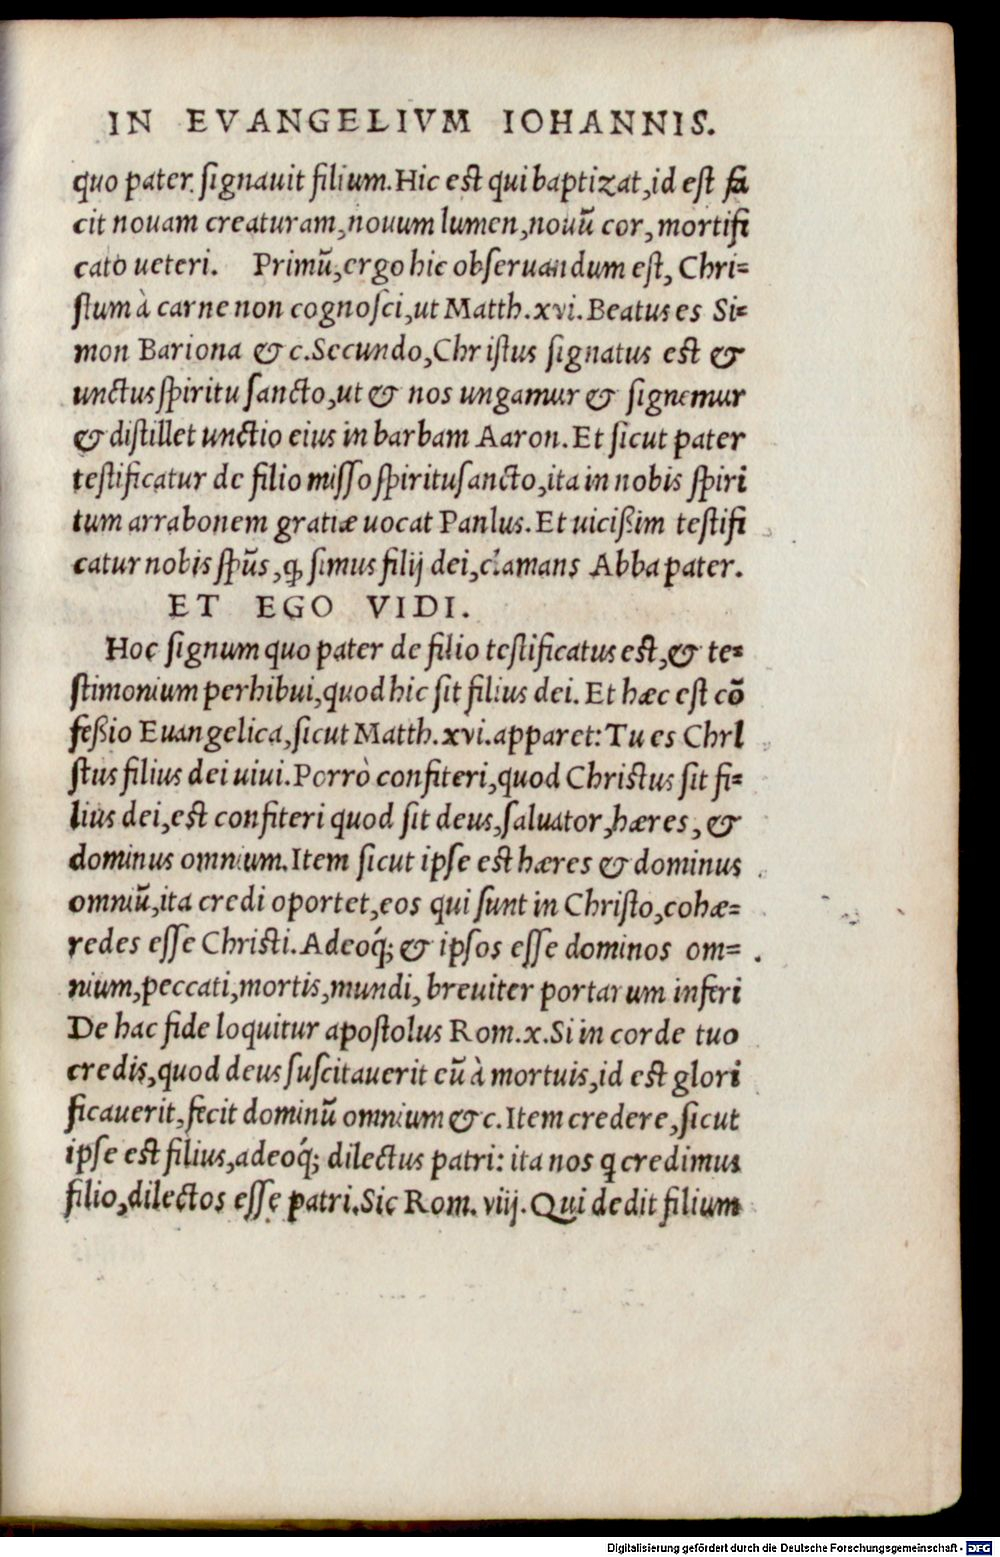 IN EVANGELIVM IOHANNIS.
quo pater signauit filium. Hic est qui baptizat, id est fa
cit nouam creaturam, nouum lumen, nouũ cor, mortifi
cato ueteri. Primũ, ergo hic obseruandum est, Chri=
stum à carne non cognosci, ut Matth. xvi. Beatus es Si=
mon Bariona & c. Secundo, Christus signatus est &
unctus spiritu sancto, ut & nos ungamur & signemur
& distillet unctio eius in barbam Aaron. Et sicut pater
testificatur de filio misso spiritusancto, ita in nobis spiri
tum arrabonem gratiæ uocat Panlus. Et uicißim testifi
catur nobis spũs, ꝙ simus filij dei, clamans Abba pater.
ET EGO VIDI.
Hoc signum quo pater de filio testificatus est, & te=
stimonium perhibui, quod hic sit filius dei. Et hæc est cõ
feßio Euangelica, sicut Matth. xvi. apparet: Tu es Chrl
stus filius dei uiui. Porrò confiteri, quod Christus sit fi=
lius dei, est confiteri quod sit deus, saluator, hæres, &
dominus omnium. Item sicut ipse est hæres & dominus
omniũ, ita credi oportet, eos qui sunt in Christo, cohæ=
redes esse Christi. Adeoq́; & ipsos esse dominos om=
nium, peccati, mortis, mundi, breuiter portarum inferi
De hac fide loquitur apostolus Rom. x. Si in corde tuo
credis, quod deus suscitauerit eũ à mortuis, id est glori
ficauerit, fecit dominũ omnium & c. Item credere, sicut
ipse est filius, adeoq́; dilectus patri: ita nos ꝗ credimus
filio, dilectos esse patri. Sic Rom. viij. Qui dedit filium
Digitalisierung gefördert durch die Deutsche Forschungsgemeinschaft - DFG